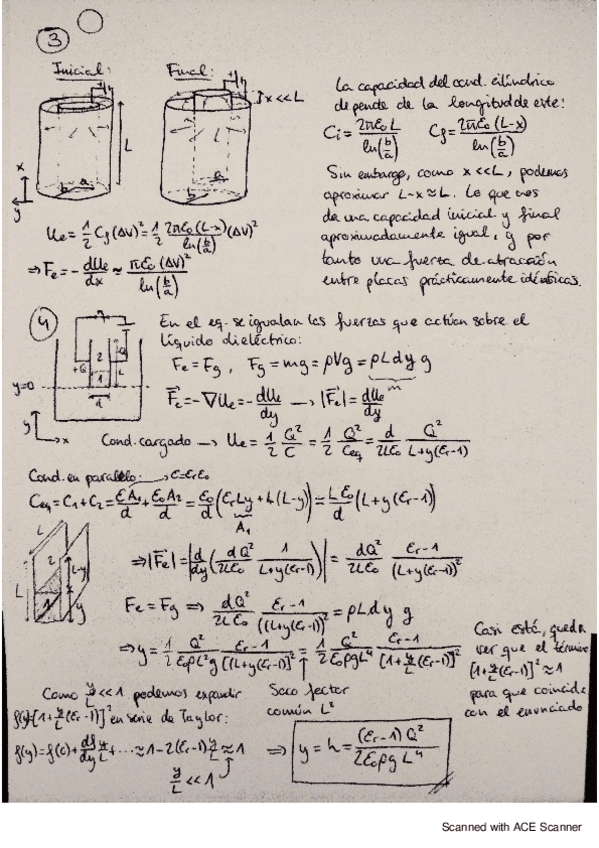 3
Inicial:
Final:
x<<L
L
x
y
b
a
b
a
La capacidad del cond. cilíndrico
depende de la longitud de este:
Ci = 2πε₀L / ln(b/a)   Cf = 2πε₀(L-x) / ln(b/a)
Sin embargo, como x<<L, podemos
aproximar L-x≈L. Lo que nos
da una capacidad inicial y final
aproximadamente igual, y por
tanto una fuerza de atracción
entre placas prácticamente idénticas.
Ue = 1/2 Cf (ΔV)² = 1/2 2πε₀(L-x)/ln(b/a) (ΔV)²
⇒ Fe = - dUe/dx ≈ πε₀(ΔV)²/ln(b/a)
4
En el eq. se igualan las fuerzas que actúan sobre el
líquido dieléctrico:
+Q
2
-Q
1
L
y=0
d
y
x
Fe = Fg , Fg = mg = ρVg = ρLdy g
m
F⃗e = -∇Ue = - dUe/dy → |F⃗e| = dUe/dy
Cond. cargado → Ue = 1/2 Q²/C = 1/2 Q²/Ceq = d/2Lε₀ Q²/(L+y(εr-1))
Cond. en paralelo: → ε=εrε₀
Ceq = C1 + C2 = εA1/d + ε₀A2/d = ε₀/d (εrLy + L(L-y)) = Lε₀/d (L+y(εr-1))
A1
L
2
L-y
L
1
y
⇒ |F⃗e| = |d/dy (dQ²/2Lε₀ 1/(L+y(εr-1)))| = dQ²/2Lε₀ (εr-1)/(L+y(εr-1))²
Fe = Fg ⇒ dQ²/2Lε₀ (εr-1)/((L+y(εr-1))² = ρLdy g
⇒ y = 1/2 Q²/ε₀ρL²g (εr-1)/[(L+y(εr-1)]² = 1/2 Q²/ε₀ρgL⁴ (εr-1)/[1+y/L(εr-1)]²
Saco factor
común L²
Casi está, queda
ver que el término
[1+y/L(εr-1)]²≈1
para que coincida
con el enunciado
Como y/L <<1 podemos expandir
f(y)=[1+y/L(εr-1)]² en serie de Taylor:
f(y)=f(0)+ df/dy y/L + ··· ≈ 1-2(εr-1) y/L ≈ 1
y/L <<1
⇒ y = h = (εr-1)Q² / 2ε₀ρg L⁴
Scanned with ACE Scanner